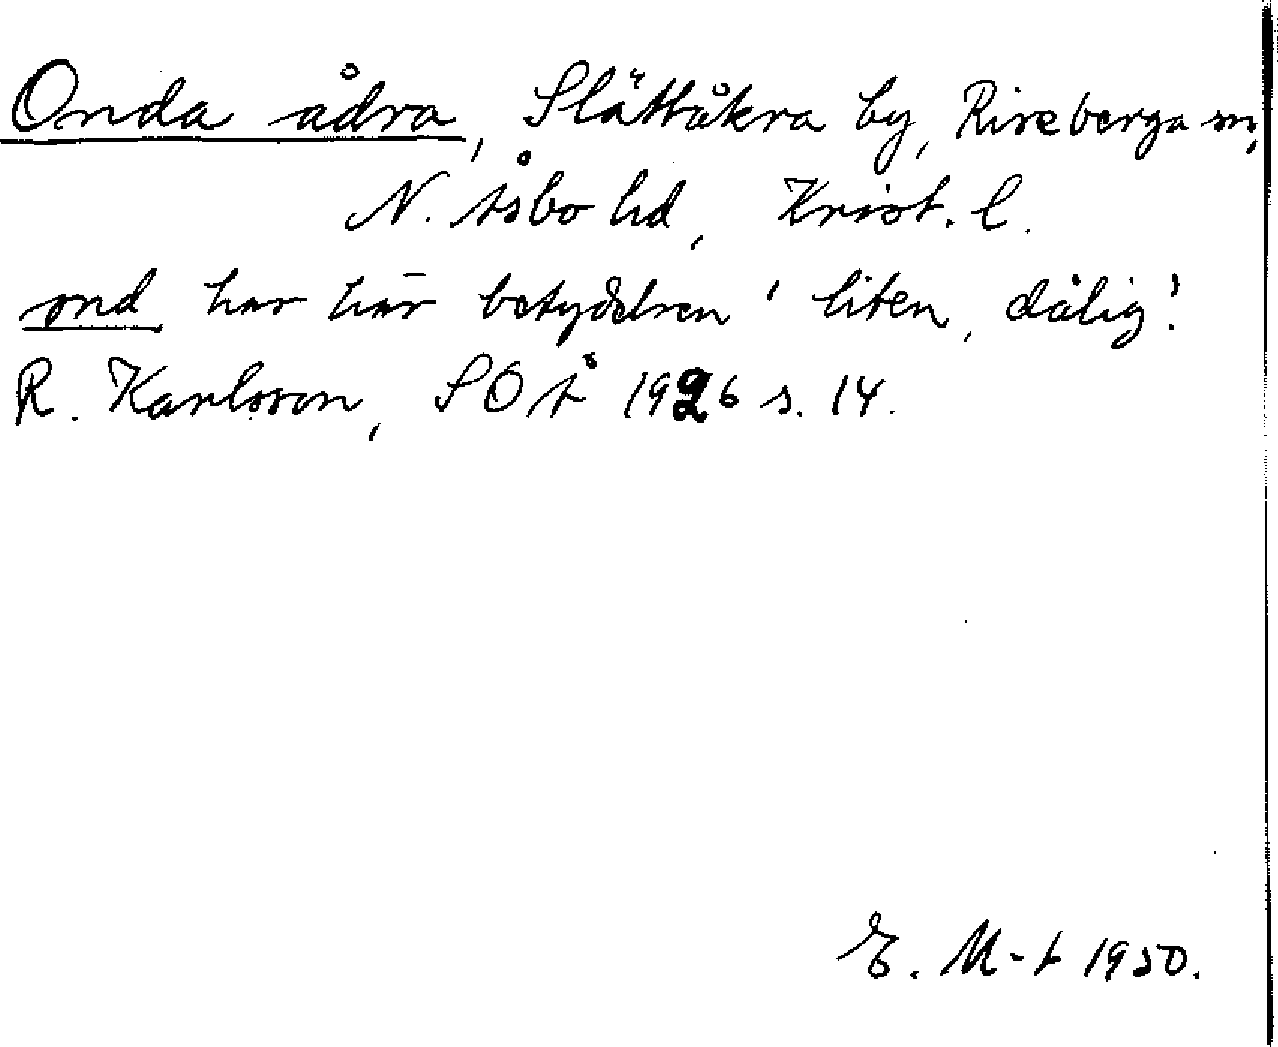 Onda ådra, Slättåkra by, Riseberga sn,
N. Åsbo hd, Krist. l.
ond har här betydelsen 'liten, dålig'.
R. Karlsson, SOÅ 1926 s. 14.
E. M-t 1950.